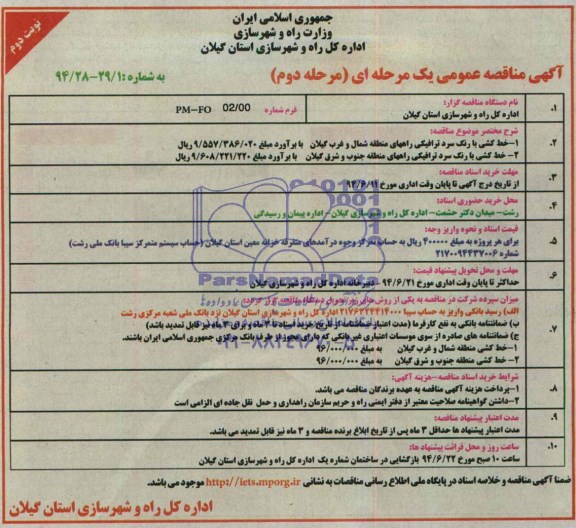 جمهوری اسلامی ایران
وزارت راه و شهرسازی
اداره کل راه و شهرسازی استان گیلان
نوبت دوم
آگهی مناقصه عمومی یک مرحله ای (مرحله دوم)
به شماره : ۲۹/۱-۲۸-۹۴
۱. نام دستگاه مناقصه گزار:
اداره کل راه و شهرسازی استان گیلان
فرم شماره 02/00 PM-FO
۲. شرح مختصر موضوع مناقصه:
۱-خط کشی با رنگ سرد ترافیکی راههای منطقه شمال و غرب گیلان با برآورد مبلغ ۹/۵۵۷/۳۸۶/۰۲۰ ریال
۲- خط کشی با رنگ سرد ترافیکی راههای منطقه جنوب و شرق گیلان با برآورد مبلغ ۹/۶۰۸/۲۲۱/۲۲۰ ریال
۳. مهلت خرید اسناد مناقصه:
از تاریخ درج آگهی تا پایان وقت اداری مورخ ۹۴/۶/۱۲
۴. محل خرید حضوری اسناد:
رشت- میدان دکتر حشمت- اداره کل راه و شهرسازی گیلان- اداره پیمان و رسیدگی
۵. قیمت اسناد و نحوه واریز وجه:
برای هر پروژه به مبلغ ۴۰۰۰۰۰ ریال به حساب تمرکز وجوه درآمدهای متفرقه خزانه معین استان گیلان (حساب سیستم متمرکز سیبا بانک ملی رشت)
شماره ۲۱۷۰۰۹۴۴۳۷۰۰۶
۶. مهلت و محل تحویل پیشنهاد قیمت:
حداکثر تا پایان وقت اداری مورخ ۹۴/۶/۲۱ - دبیرخانه اداره کل راه و شهرسازی گیلان
۷. میزان سپرده شرکت در مناقصه به یکی از روش های زیر
الف) رسید بانکی واریز به حساب سیبا ۲۱۷۶۳۲۴۴۱۴۰۰۰ اداره کل راه و شهرسازی استان گیلان نزد بانک ملی شعبه مرکزی رشت
ب) ضمانتنامه بانکی به نفع کارفرما (مدت اعتبار ضمانتنامه از تاریخ خرید اسناد تا ۳ ماه و برای ۳ ماه نیز قابل تمدید باشد)
ج) ضمانتنامه های صادره از سوی موسسات اعتباری غیربانکی که دارای مجوز از طرف بانک مرکزی جمهوری اسلامی ایران باشند.
۱-خط کشی منطقه شمال و غرب گیلان به مبلغ ۹۶/۰۰۰/۰۰۰
۲- خط کشی منطقه جنوب و شرق گیلان به مبلغ ۹۶/۰۰۰/۰۰۰
۸. شرایط خرید اسناد مناقصه-هزینه آگهی:
۱-پرداخت هزینه آگهی مناقصه به عهده برندگان مناقصه می باشد.
۲-داشتن گواهینامه صلاحیت معتبر از دفتر ایمنی راه و حریم سازمان راهداری و حمل نقل جاده ای الزامی است
۹. مدت اعتبار پیشنهاد مناقصه:
مدت اعتبار پیشنهاد ها حداقل ۳ ماه پس از تاریخ ابلاغ برنده مناقصه و ۳ ماه نیز قابل تمدید می باشد.
۱۰. ساعت روز و محل قرائت پیشنهاد ها:
ساعت ۱۰ صبح مورخ ۹۴/۶/۲۲ بازگشایی در ساختمان شماره یک اداره کل راه و شهرسازی استان گیلان
ضمنا آگهی مناقصه و خلاصه اسناد در پایگاه ملی اطلاع رسانی مناقصات به نشانی http://iets.mporg.ir موجود می باشد.
اداره کل راه و شهرسازی استان گیلان
ParsNamadData